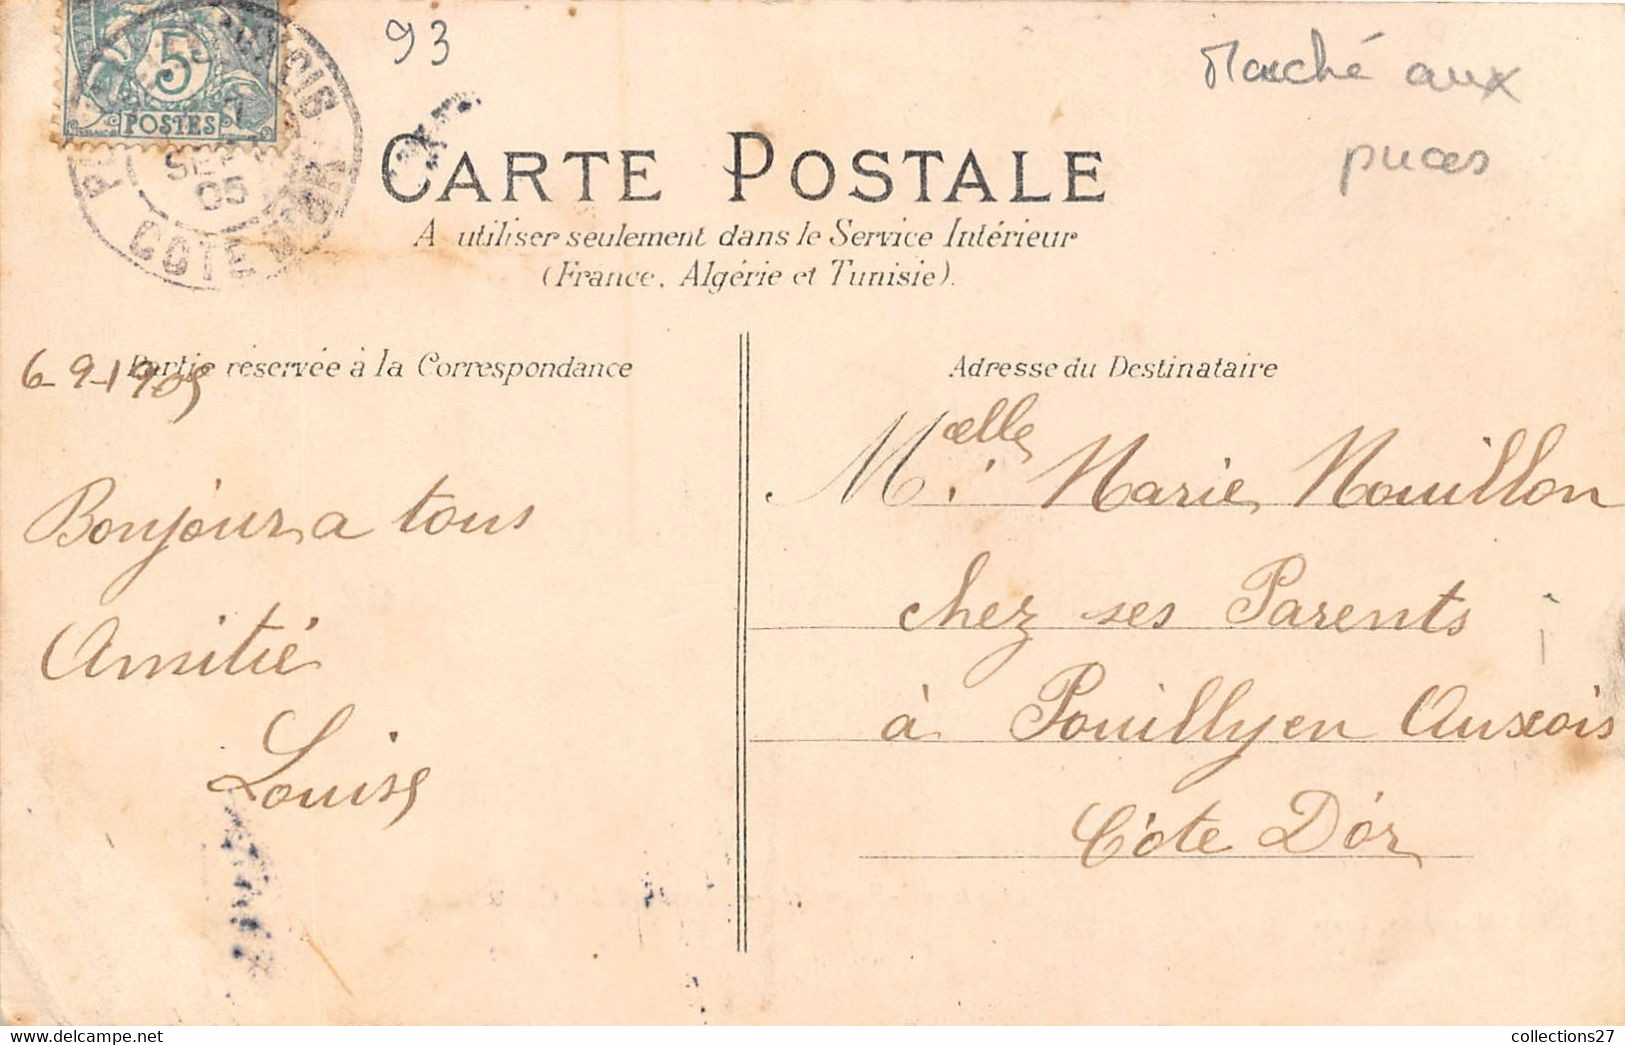 5
POSTES
COTE
SEPT
05
93
Marché aux
puces
CARTE POSTALE
A utiliser seulement dans le Service Intérieur
(France, Algérie et Tunisie).
Partie réservée à la Correspondance
6-9-1905
Bonjour a tous
Amitié
Louise
Adresse du Destinataire
Melle Marie Nouillon
chez ses Parents
à Pouilly en Auxois
Côte D'or
collections27